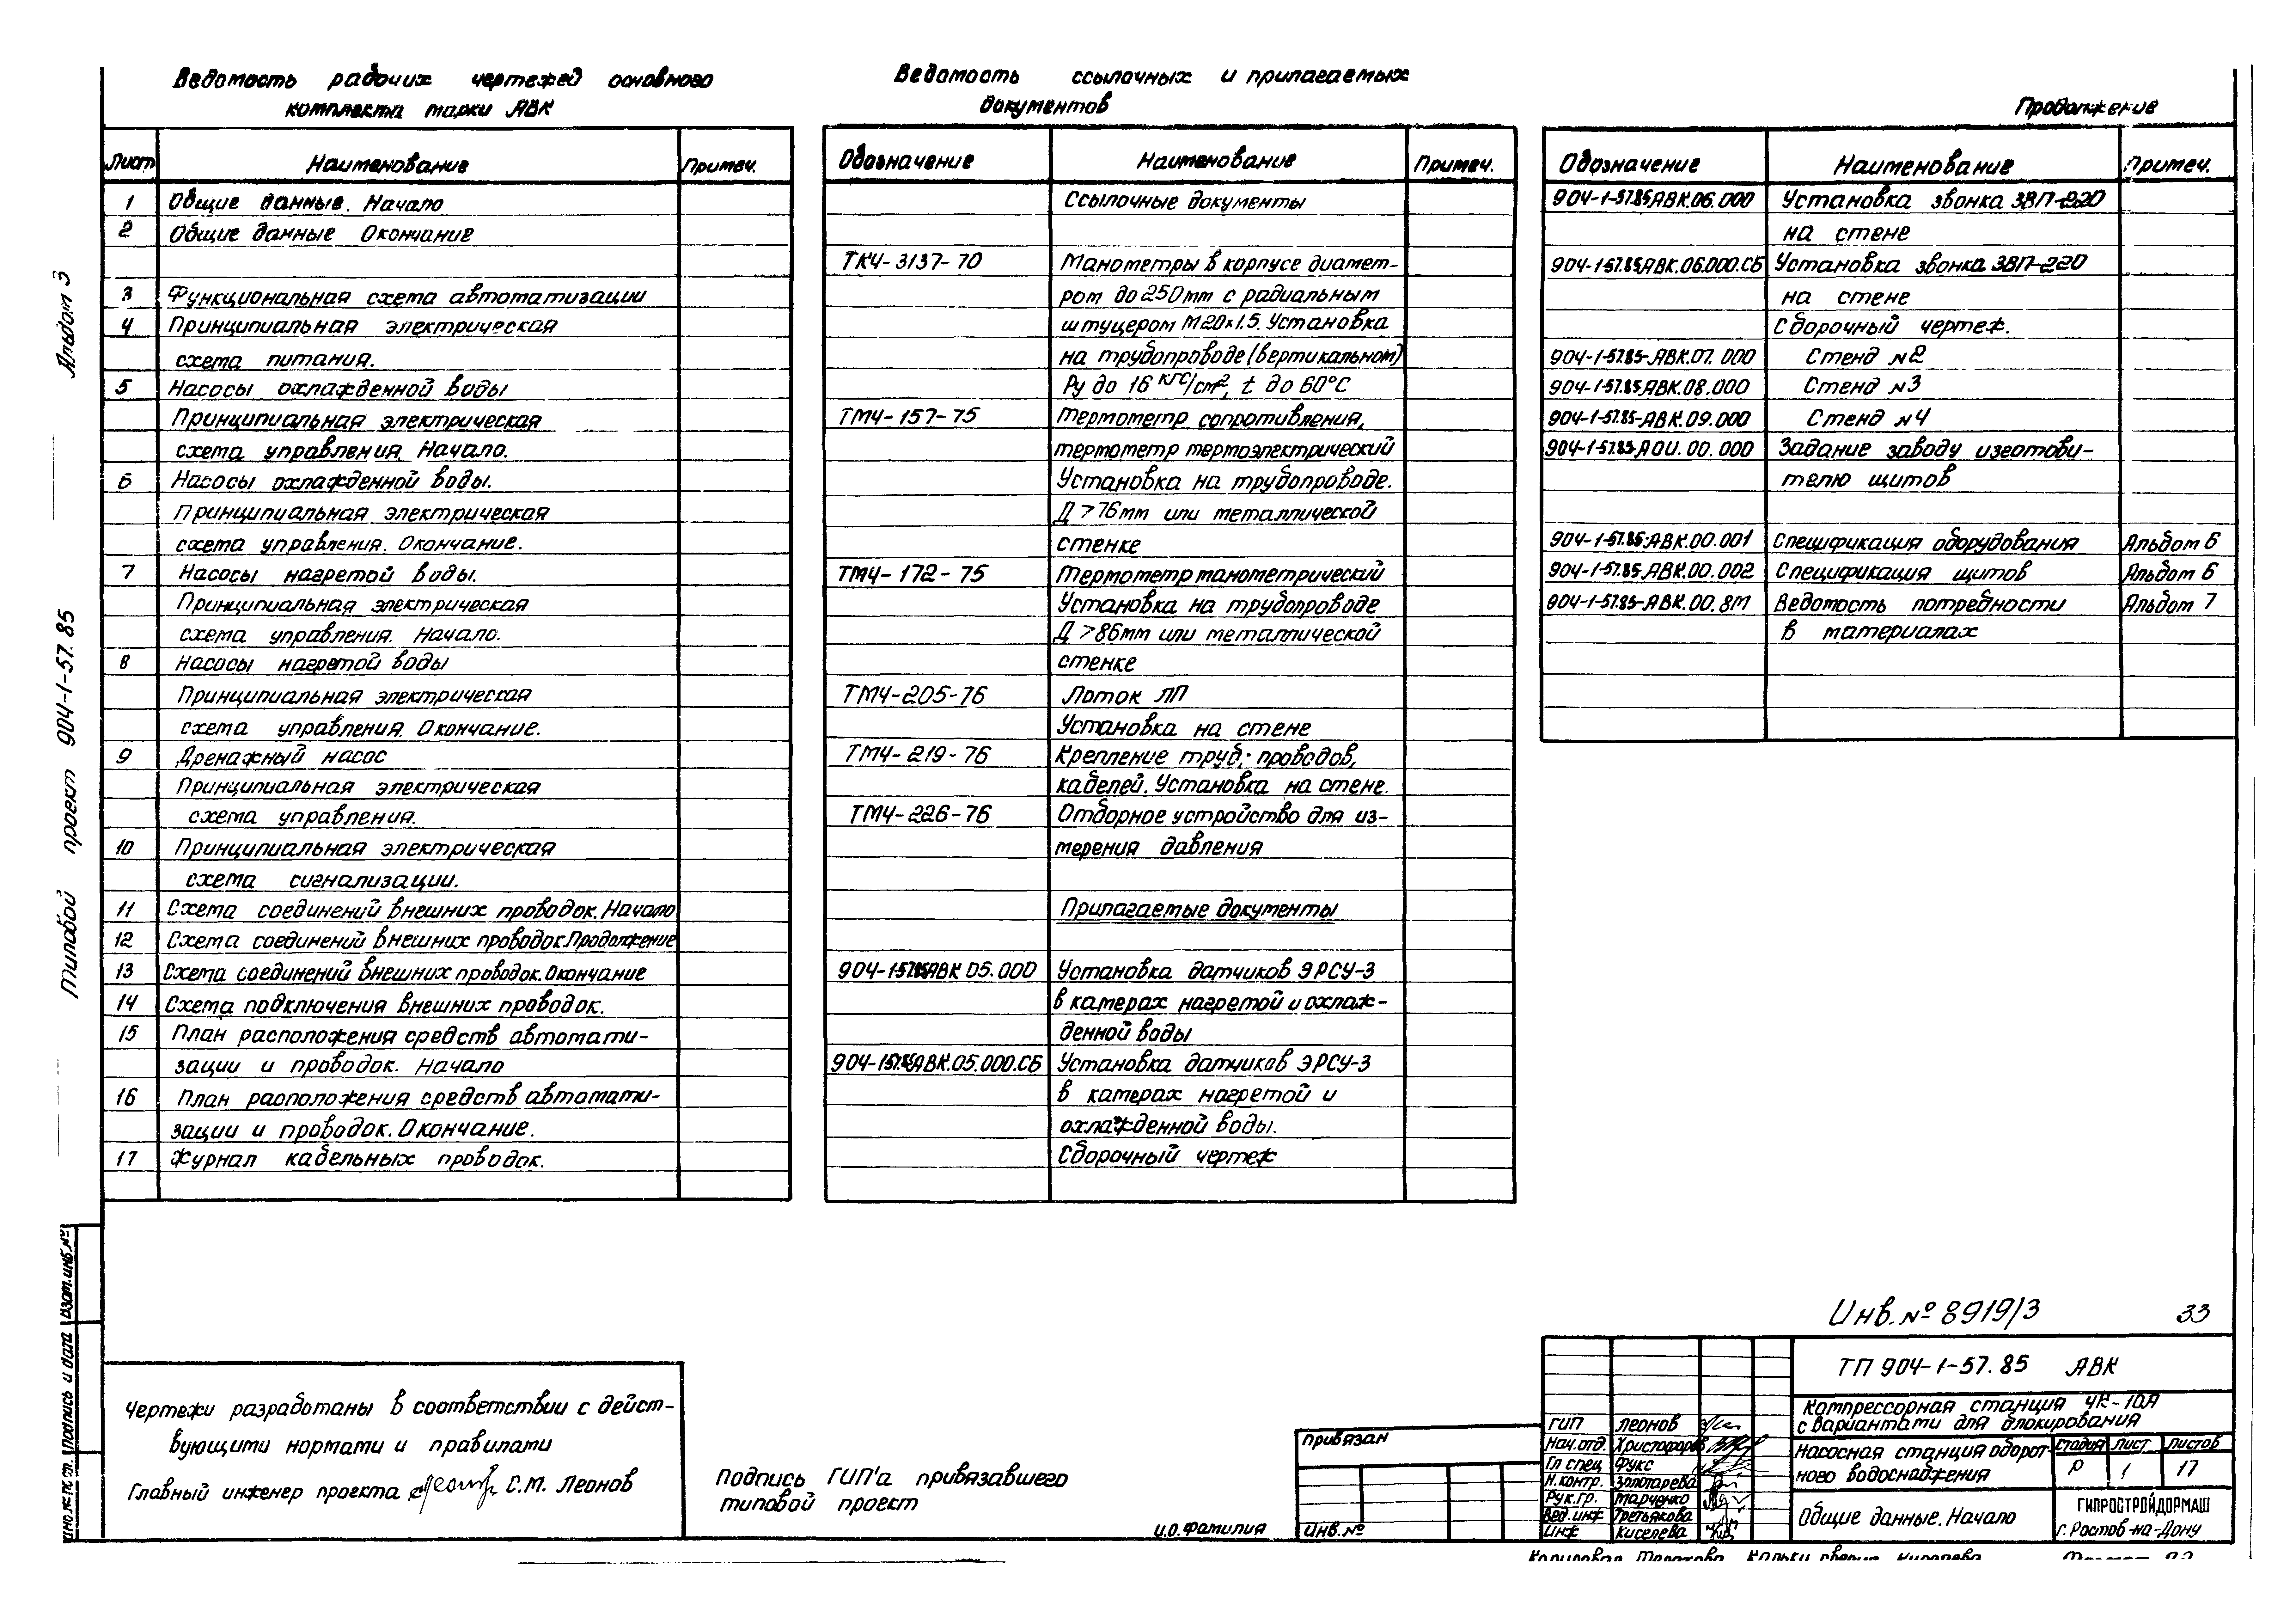 Ведомость рабочих чертежей основного
комплекта марки АВК
Лист Наименование Примеч.
1 Общие данные. Начало
2 Общие данные Окончание
3 Функциональная схема автоматизации
4 Принципиальная электрическая
схема питания.
5 Насосы охлажденной воды
Принципиальная электрическая
схема управления. Начало.
6 Насосы охлажденной воды.
Принципиальная электрическая
схема управления. Окончание.
7 Насосы нагретой воды.
Принципиальная электрическая
схема управления. Начало.
8 Насосы нагретой воды
Принципиальная электрическая
схема управления. Окончание.
9 Дренажный насос
Принципиальная электрическая
схема управления.
10 Принципиальная электрическая
схема сигнализации.
11 Схема соединений внешних проводок. Начало
12 Схема соединений внешних проводок. Продолжение
13 Схема соединений внешних проводок. Окончание
14 Схема подключения внешних проводок.
15 План расположения средств автомати-
зации и проводок. Начало
16 План расположения средств автомати-
зации и проводок. Окончание.
17 Журнал кабельных проводок.
Ведомость ссылочных и прилагаемых
документов
Обозначение Наименование Примеч.
Ссылочные документы
ТК4-3137-70 Манометры в корпусе диамет-
ром до 250мм с радиальным
штуцером М20х1.5. Установка
на трубопроводе (вертикальном)
Ру до 16 кгс/см², t до 60°С
ТМ4-157-75 Термометр сопротивления,
термометр термоэлектрический
Установка на трубопроводе.
Д>76мм или металлической
стенке
ТМ4-172-75 Термометр манометрический
Установка на трубопроводе
Д>86мм или металлической
стенке
ТМ4-205-76 Лоток ЛП
Установка на стене
ТМ4-219-76 Крепление труб, проводов,
кабелей. Установка на стене.
ТМ4-226-76 Отборное устройство для из-
мерения давления
Прилагаемые документы
904-1-57.85 АВК 05.000 Установка датчиков ЭРСУ-3
в камерах нагретой и охлаж-
денной воды
904-1-57.85 АВК.05.000.СБ Установка датчиков ЭРСУ-3
в камерах нагретой и
охлажденной воды.
Сборочный чертеж
Продолжение
Обозначение Наименование Примеч.
904-1-57.85 АВК.06.000 Установка звонка ЗВП-220
на стене
904-1-57.85 АВК.06.000.СБ Установка звонка ЗВП-220
на стене
Сборочный чертеж.
904-1-57.85-АВК.07.000 Стенд №2
904-1-57.85-АВК.08.000 Стенд №3
904-1-57.85-АВК.09.000 Стенд №4
904-1-57.85-АОИ.00.000 Задание заводу изготови-
телю щитов
904-1-57.85-АВК.00.001 Спецификация оборудования Альбом 6
904-1-57.85.АВК.00.002 Спецификация щитов Альбом 6
904-1-57.85-АВК.00.ВМ Ведомость потребности Альбом 7
в материалах
Альбом 3
Типовой проект 904-1-57.85
Взам. инв. №
Подпись и дата
Инв. № подл.
Чертежи разработаны в соответствии с дейст-
вующими нормами и правилами
Главный инженер проекта С.М. Леонов
Подпись ГИП'а привязавшего
типовой проект
и.о. Фамилия
Привязан
Инв. №
Инв. № 8919/3 33
ТП 904-1-57.85 АВК
Компрессорная станция 4К-10А
с вариантами для блокирования
Насосная станция оборот-
ного водоснабжения
Стадия Лист Листов
Р 1 17
Общие данные. Начало
ГИПРОСТРОЙДОРМАШ
г. Ростов-на-Дону
ГИП Леонов
Нач.отд. Христофоров
Гл спец Фукс
Н.контр. Золотарева
Рук.гр. Марченко
Вед.инж Третьякова
Инж Киселева